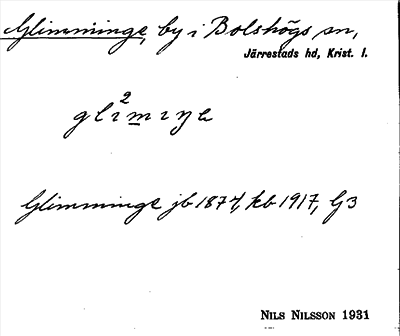 Glimminge, by i Bolshögs sn,
Järrestads hd, Krist. l.
Glimminge jb 1874, kb 1917, G3
NILS NILSSON 1931